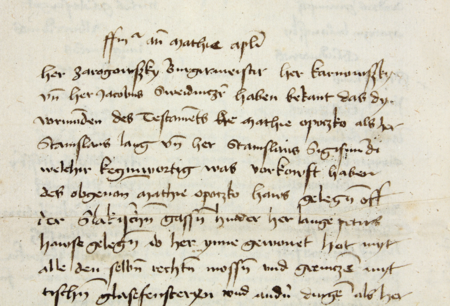 ffr̄ ān mathie apl̄i
her zarogowsky Burgermeister her karnowsky
vn̄ her Jacobus Sweidniczr̄ haben bekant das dy
vormunden des Testamēts hr̄e Mathie opoczko als her
Stanislaus laig vn̄ her Stanislaus Sigismūdi
welchir kegenwortig was vorkowft haben
des obgenan̄ mathie opoczko haws gelegn̄ off
der gassn̄ hinder her lange peters
hawse gelegn̄ do her ynne gewonet hot myt
alle den selbn̄ rechtn̄ mossn̄ vnd grenczen myt
tischn̄ glasefenstern vnd andr̄ dingen als her